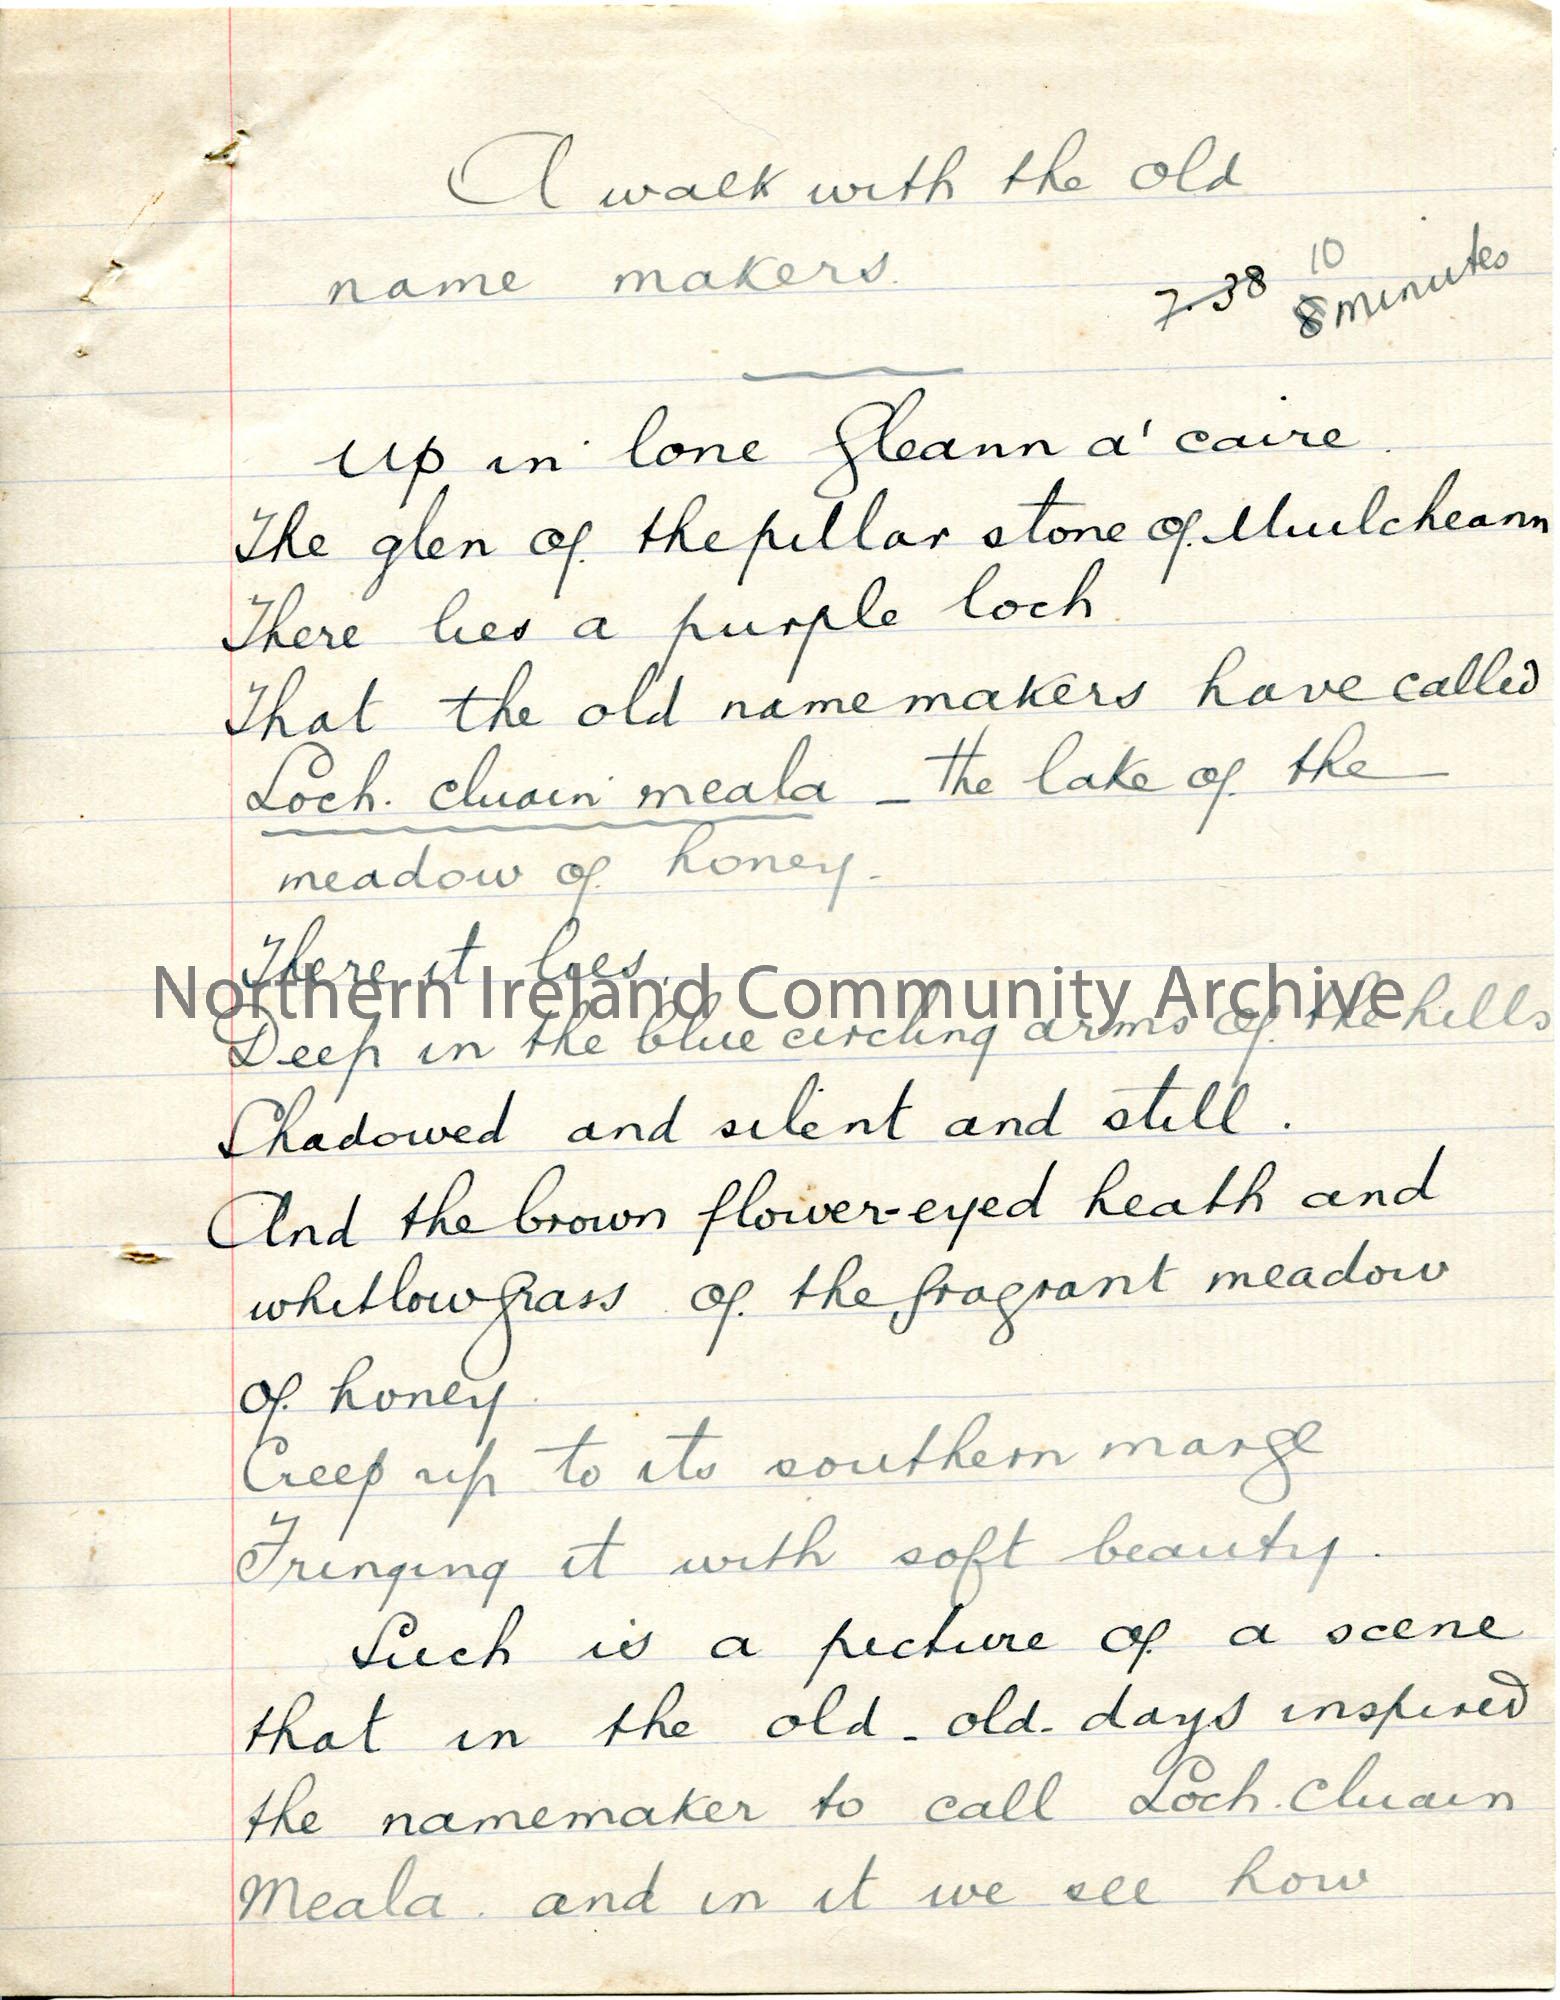 A walk with the old
name makers.
7.38 10
8 minutes
Up in lone Gleann a' caire.
The glen of the pillar stone of Muilcheann
There lies a purple loch
That the old namemakers have called
Loch. cluain meala - the lake of the
meadow of honey.
There it lies.
Northern Ireland Community Archive
Deep in the blue circling arms of the hills
Shadowed and silent and still.
And the brown flower-eyed heath and
whitlow grass of the fragrant meadow
of honey
Creep up to its southern marge
Fringing it with soft beauty.
Such is a picture of a scene
that in the old - old - days inspired
the namemaker to call Loch. Cluain
Meala. and in it we see how